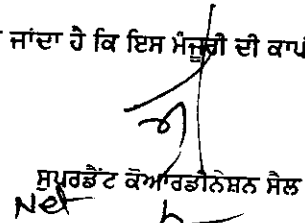 ਜਾਂਦਾ ਹੈ ਕਿ ਇਸ ਮੰਜੂਰੀ ਦੀ ਕਾਪੀ
ਸੁਪਰਡੈਂਟ ਕੋਆਰਡੀਨੇਸ਼ਨ ਸੈਲ